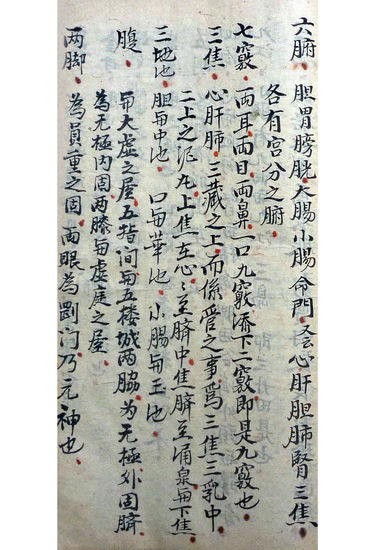 六腑 胆胃膀胱大腸小腸命門又云心肝胆肺腎三焦
各有宫分之腑
七竅 両耳両目両鼻一口九竅添下二竅即是九竅也
三焦 心肝肺三藏之上而係管之事爲三焦二乳中
二上之泥丸上焦在心〻至臍中焦臍至涌泉為下焦
三地也 胆為中地 口為華地 小腸為玉地
腹 為大虚之屋五指间為五楼城両脇为无極外固臍
為无極内固両膝為虚庭之屋
両脚 為員重之固両眼為罡门乃元神也